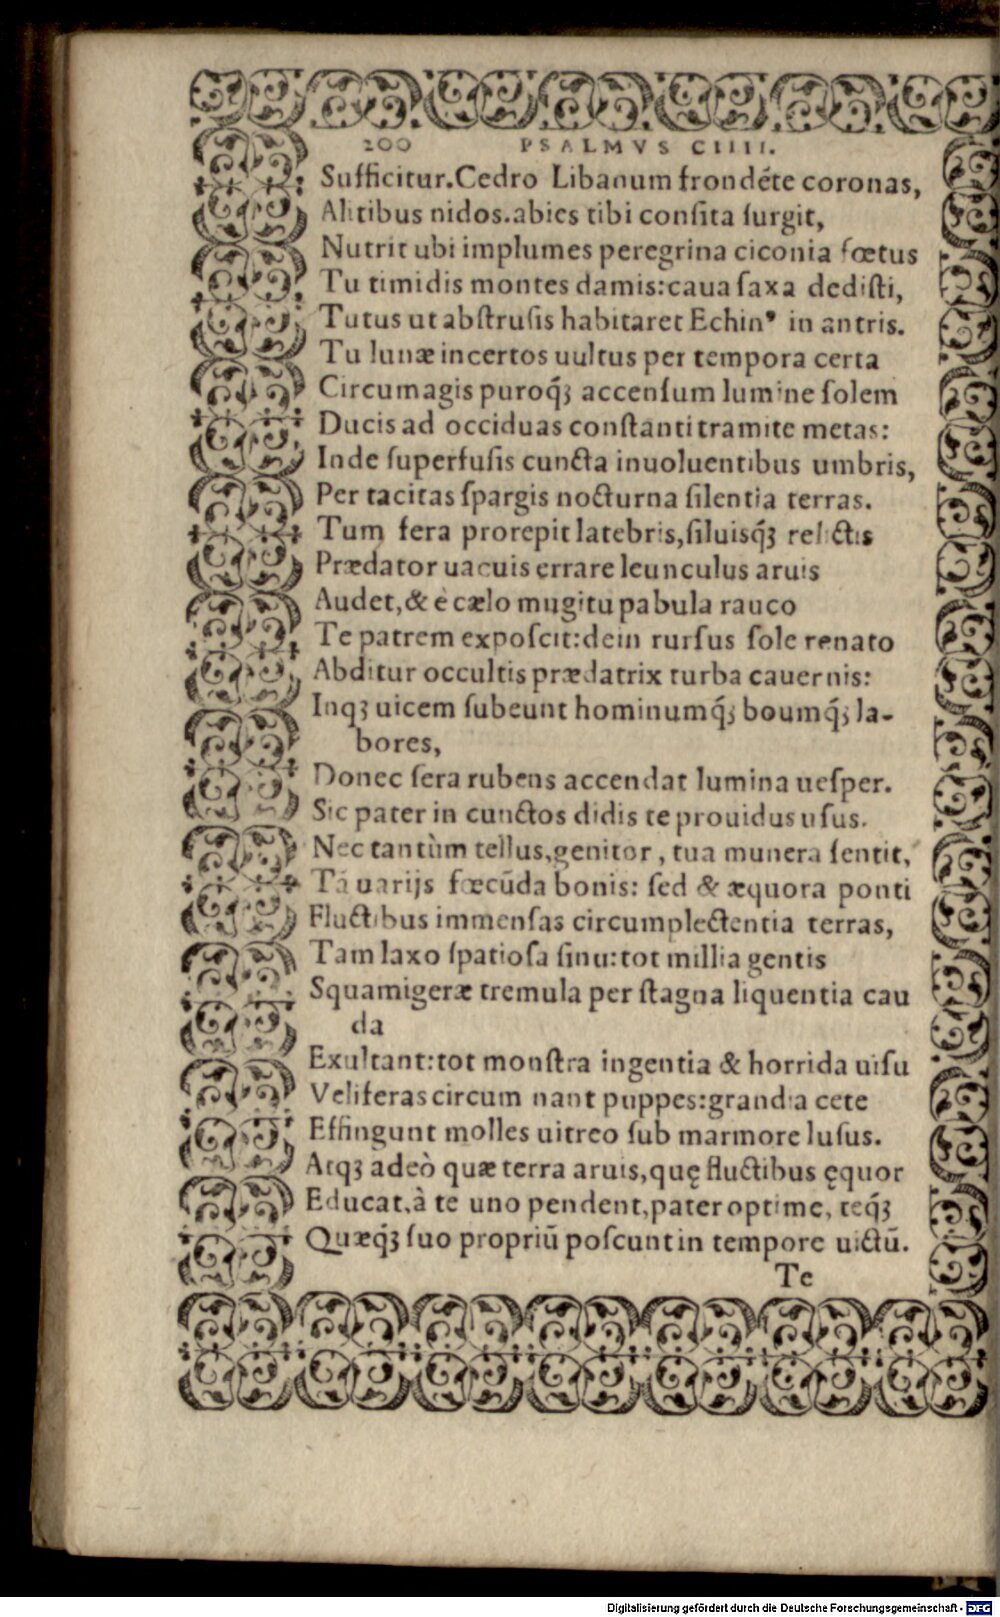 200 PSALMVS CIIII.
Sufficitur.Cedro Libanum frondẽte coronas,
Alitibus nidos.abies tibi conſita ſurgit,
Nutrit ubi implumes peregrina ciconia fœtus
Tu timidis montes damis:caua ſaxa dediſti,
Tutus ut abſtruſis habitaret Echinꝰ in antris.
Tu lunæ incertos uultus per tempora certa
Circumagis puroq́ꝫ accenſum lumine ſolem
Ducis ad occiduas conſtanti tramite metas:
Inde ſuperfuſis cuncta inuoluentibus umbris,
Per tacitas ſpargis nocturna ſilentia terras.
Tum fera prorepit latebris,ſiluisq́ꝫ relictis
Prædator uacuis errare leunculus aruis
Audet,& è cælo mugitu pabula rauco
Te patrem expoſcit:dein rurſus ſole renato
Abditur occultis prædatrix turba cauernis:
Inqꝫ uicem ſubeunt hominumq́ꝫ boumq́ꝫ la-
bores,
Donec ſera rubens accendat lumina ueſper.
Sic pater in cunctos didis te prouidus uſus.
Nec tantùm tellus,genitor, tua munera ſentit,
Tã uarijs fœcũda bonis: ſed & æquora ponti
Fluctibus immenſas circumplectentia terras,
Tam laxo ſpatioſa ſinu:tot millia gentis
Squamigeræ tremula per ſtagna liquentia cau
da
Exultant:tot monſtra ingentia & horrida uiſu
Veliferas circum nant puppes:grandia cete
Effingunt molles uitreo ſub marmore luſus.
Atqꝫ adeò quæ terra aruis,quę fluctibus ęquor
Educat,à te uno pendent,pater optime, teq́ꝫ
Quæq́ꝫ ſuo propriũ poſcunt in tempore uictũ.
Te
Digitalisierung gefördert durch die Deutsche Forschungsgemeinschaft - DFG